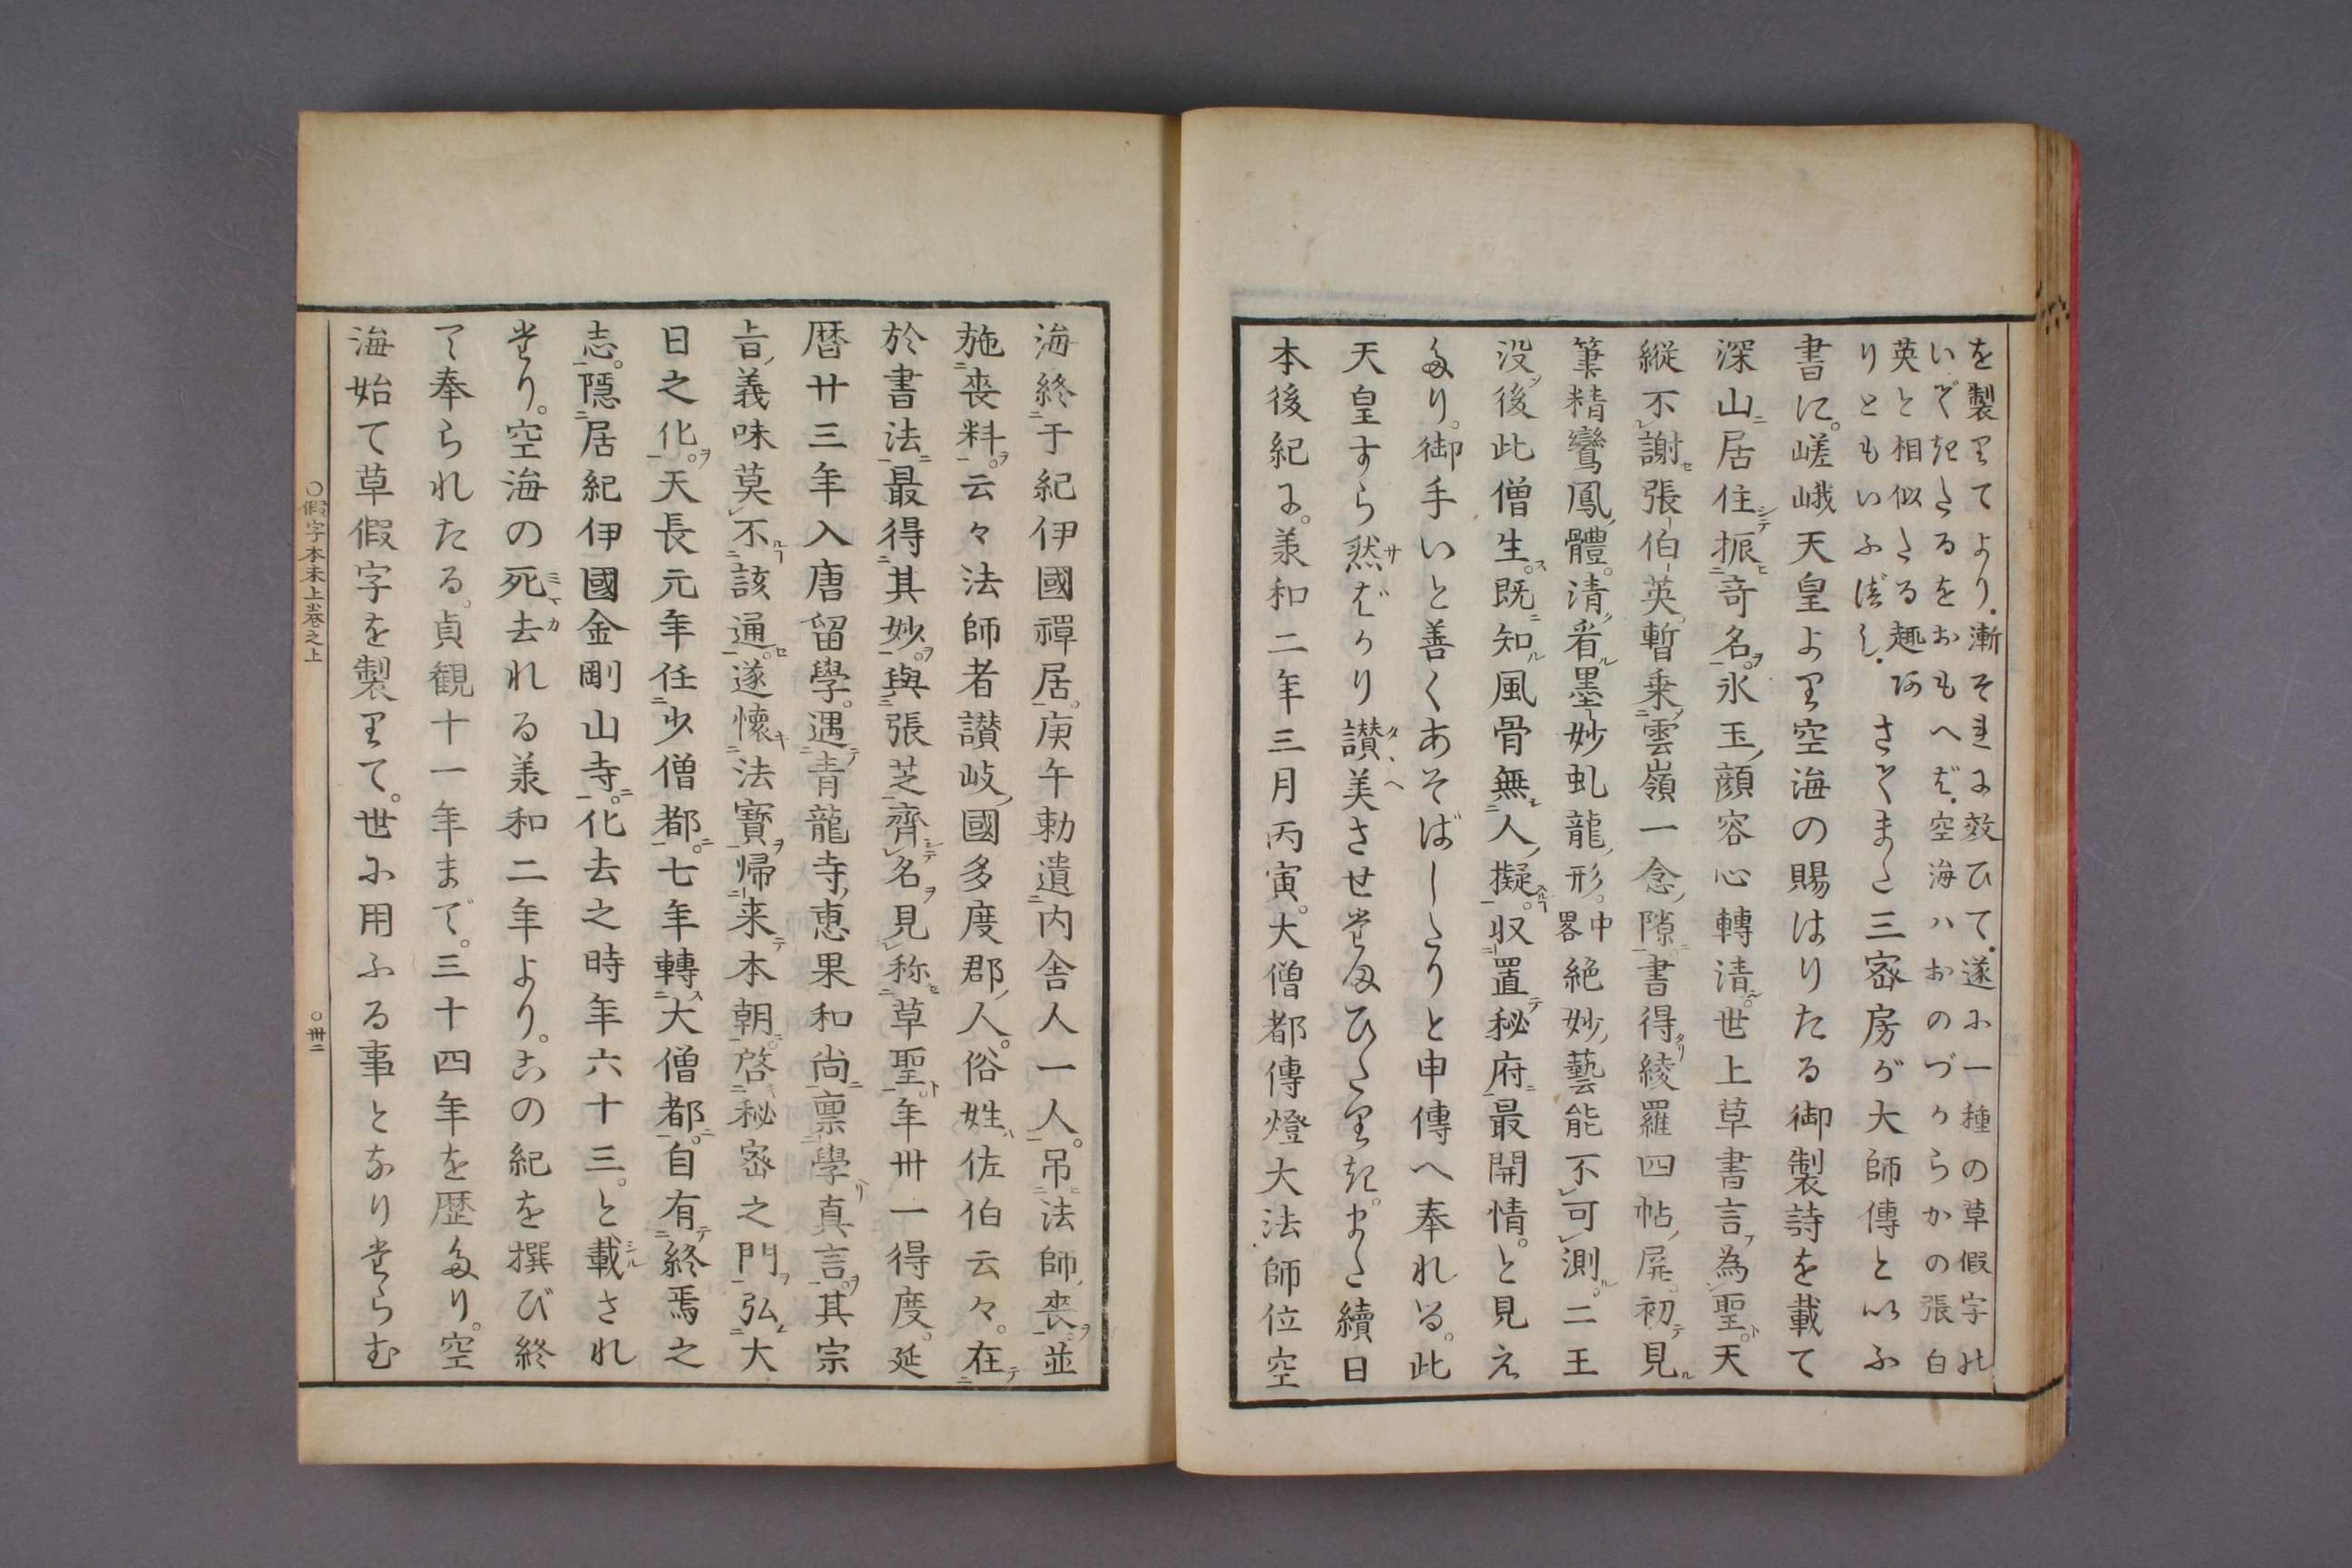 を製りてより、漸それに效ひて、遂に一種の草假字の
いできたるをおもへば、空海ハおのづからかの張白
英と相似たる趣あ
りともいふべし、さてまた三密房が大師傳と以ふ
書に。嵯峨天皇より空海の賜はりたる御製詩を載て
深山居住振奇名。氷玉顔容心轉清。世上草書言為聖。天
縦不謝張伯英。暫乗雲嶺一念隙。書得綾羅四帖屏。初見
筆精鸞鳳體。清看墨妙虬龍形。中畧絶妙藝能不可測。二王
没後此僧生。既知風骨無人擬。収置秘府最開情。と見え
たり。御手いと善くあそばしたりと申傳へ奉れる。此
天皇すら然ばかり讃美させたまひたりき。また續日
本後紀に。美和二年三月丙寅。大僧都傳燈大法師位空
海終于紀伊國禪居。庚午勅遣内舎人一人。吊法師喪並
施喪料。云々法師者讃岐國多度郡人。俗姓佐伯云々。在
於書法最得其妙。與張芝齊名見称草聖。年卅一得度。延
暦廿三年入唐留學。遇青龍寺恵果和尚禀學真言。其宗
旨義味莫不該通。遂懐法寶歸来本朝。啓秘密之門弘大
日之化。天長元年任少僧都。七年轉大僧都。自有終焉之
志。隠居紀伊國金剛山寺。化去之時年六十三。と載され
たり。空海の死去れる羕和二年より。この紀を撰び終
て奉られたる。貞観十一年まで。三十四年を歴たり。空
海始て草假字を製りて。世に用ふる事となりたらむ
〇假字本末上巻之上
〇卅二